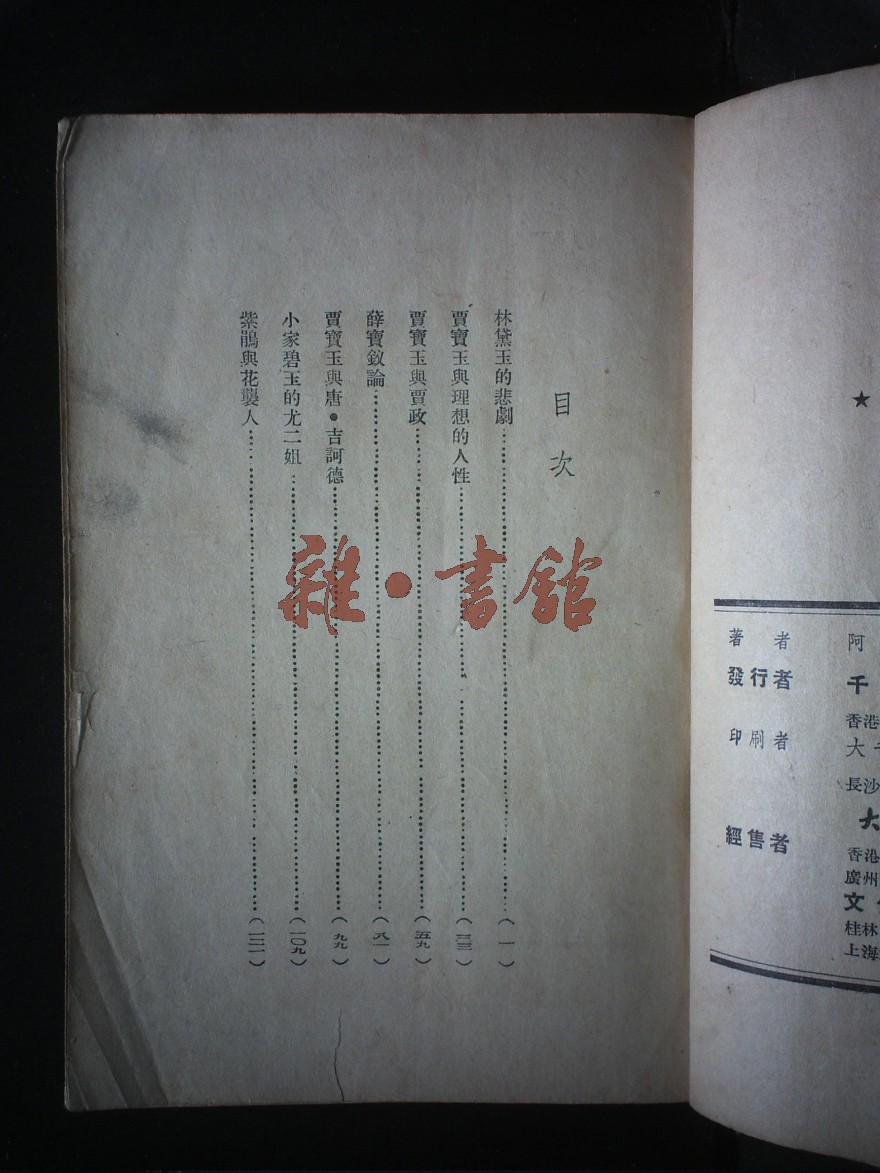 目次
林黛玉的悲劇………(一)
賈寶玉與理想的人性………
賈寶玉與賈政………(五九)
薛寶釵論………(八一)
賈寶玉與唐·吉訶德………(九九)
小家碧玉的尤二姐………(一〇九)
紫鵑與花襲人………(一二一)
★
著者 阿
發行者 千
香港
印刷者 大
長沙
大
經售者
香港
廣州
文
桂林
上海
雜·書館